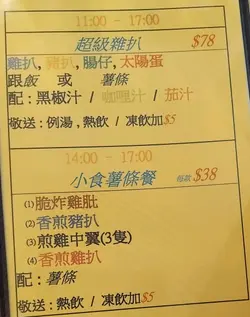 11:00 - 17:00
超級雜扒 $78
雞扒, 豬扒, 腸仔, 太陽蛋
跟飯 或 薯條
配：黑椒汁 / 咖喱汁 / 茄汁
敬送：例湯, 熱飲 / 凍飲加$5
14:00 - 17:00
小食薯條餐 每款 $38
(1) 脆炸雞肶
(2) 香煎豬扒
(3) 煎雞中翼(3隻)
(4) 香煎雞扒
配：薯條
敬送：熱飲 / 凍飲加$5